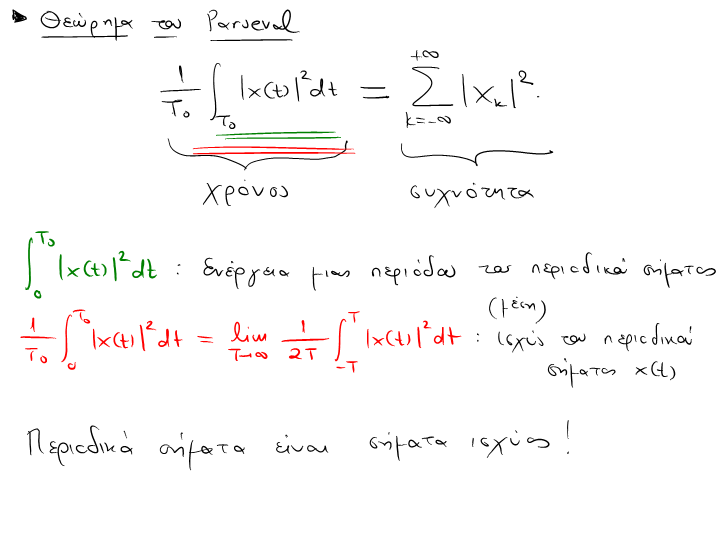 ► Θεώρημα του Parseval
1/T₀ ∫_{T₀} |x(t)|² dt = Σ_{k=-∞}^{+∞} |X_k|².
χρόνος συχνότητα
∫₀^{T₀} |x(t)|² dt : Ενέργεια μιας περιόδου του περιοδικού σήματος
(μέση)
1/T₀ ∫₀^{T₀} |x(t)|² dt = lim_{T→∞} 1/2T ∫_{-T}^{T} |x(t)|² dt : ισχύς του περιοδικού
σήματος x(t)
Περιοδικά σήματα είναι σήματα ισχύος!